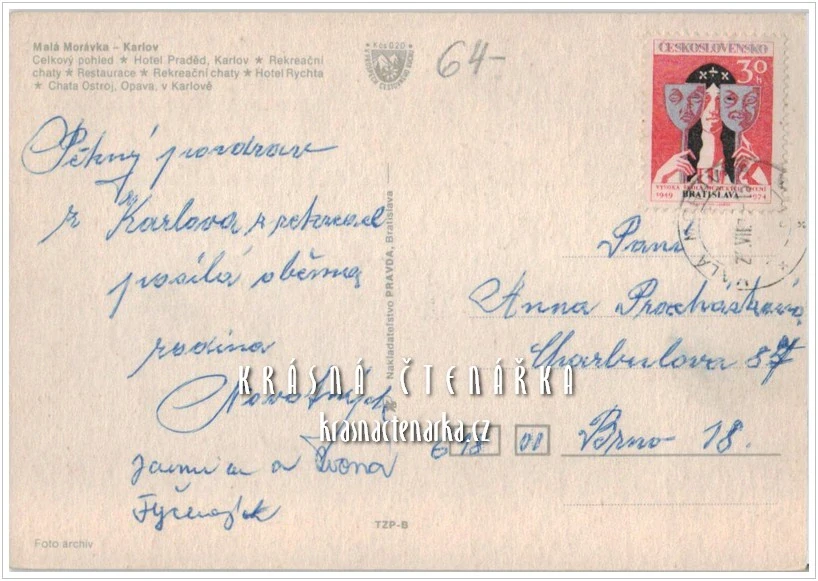 Malá Morávka – Karlov
Celkový pohled ★ Hotel Praděd, Karlov ★ Rekreační
chaty ★ Restaurace ★ Rekreační chaty ★ Hotel Rychta
★ Chata Ostroj, Opava, v Karlově
Kčs 0,20
64-
ČESKOSLOVENSKO
30 h
BRATISLAVA
1949 1974
MALÁ M
Pěkný pozdrav
z Karlova
posílá oběma
rodina
Novotných
a Ivona
Nakladatelstvo PRAVDA, Bratislava
Paní
Anna Procházková
Charbulova 87
618 00 Brno 18.
KRÁSNÁ ČTENÁŘKA
krasnactenarka.cz
TZP-B
Foto archiv